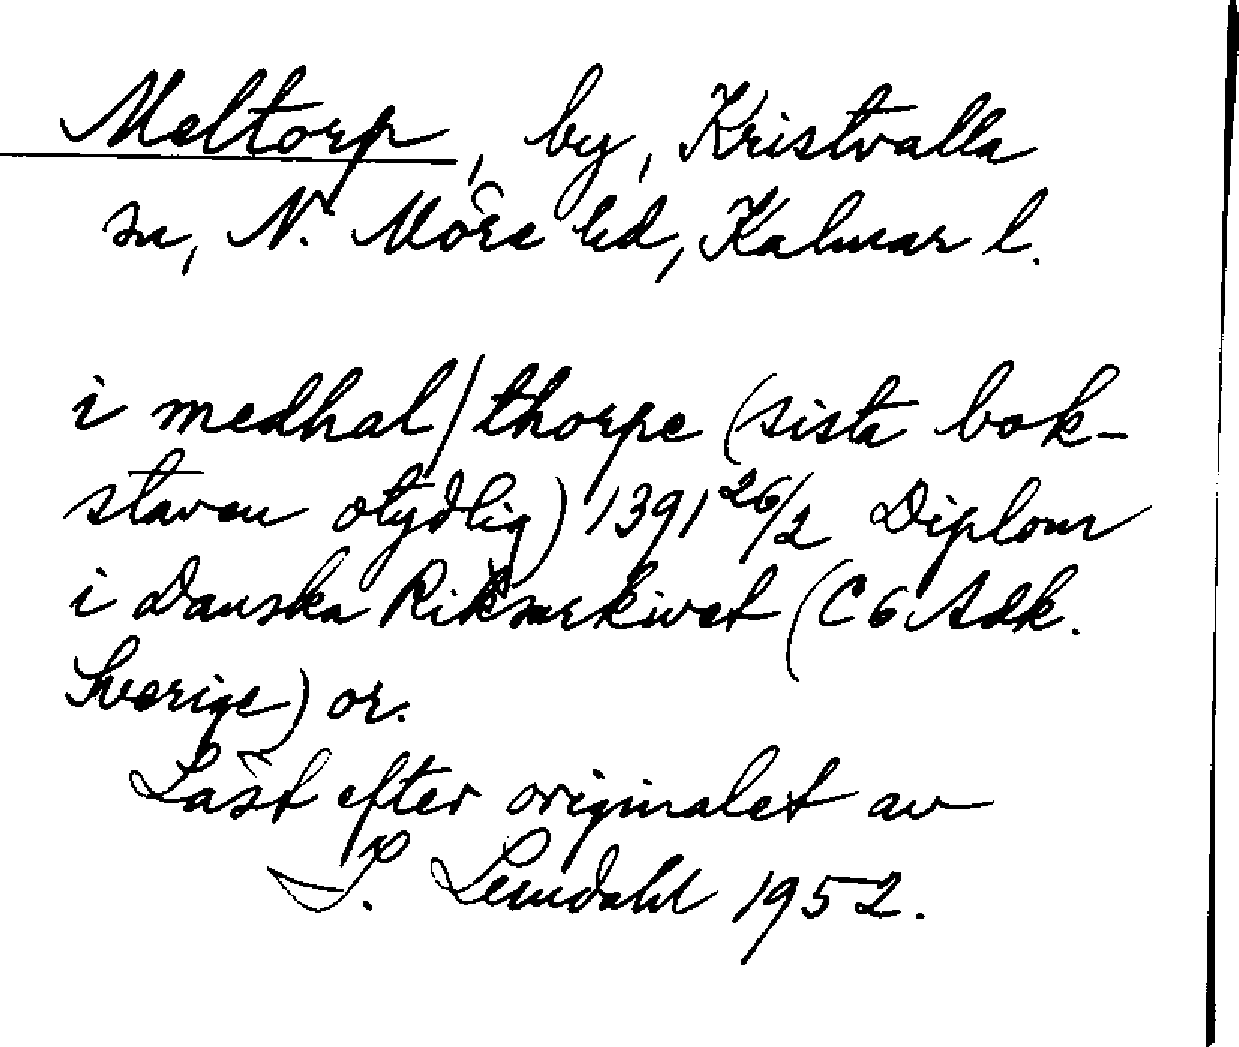 Meltorp, by, Kristvalla
sn, N. Möre hd, Kalmar l.
i medhal/thorpe (sista bok-
staven otydlig) 1391 26/2 Diplom
i Danska Riksarkivet (C6 Adk.
Sverige) or.
Läst efter originalet av
S. Lemdahl 1952.